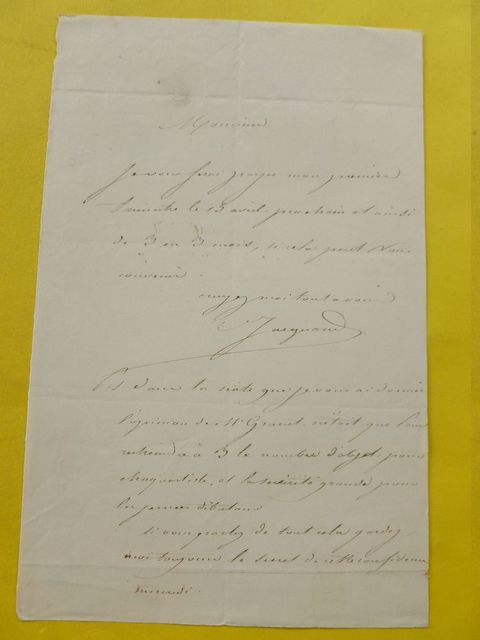 Monsieur
Je vous ferai payer mon premier
trimestre le 13 avril prochain et ainsi
de 3 en 3 mois, si cela peut vous
convenir.
croyez moi tout à vous
Jacquand
PS dans la note que je vous ai donnée
l'opinion de Mr Granet. était que l'on
à 3 le nombre d'objets pour
chaque artiste, et la sévérité grande pour
les jeunes débutans
Si vous parlez de tout cela gardez
moi toujours le secret de cette confidence